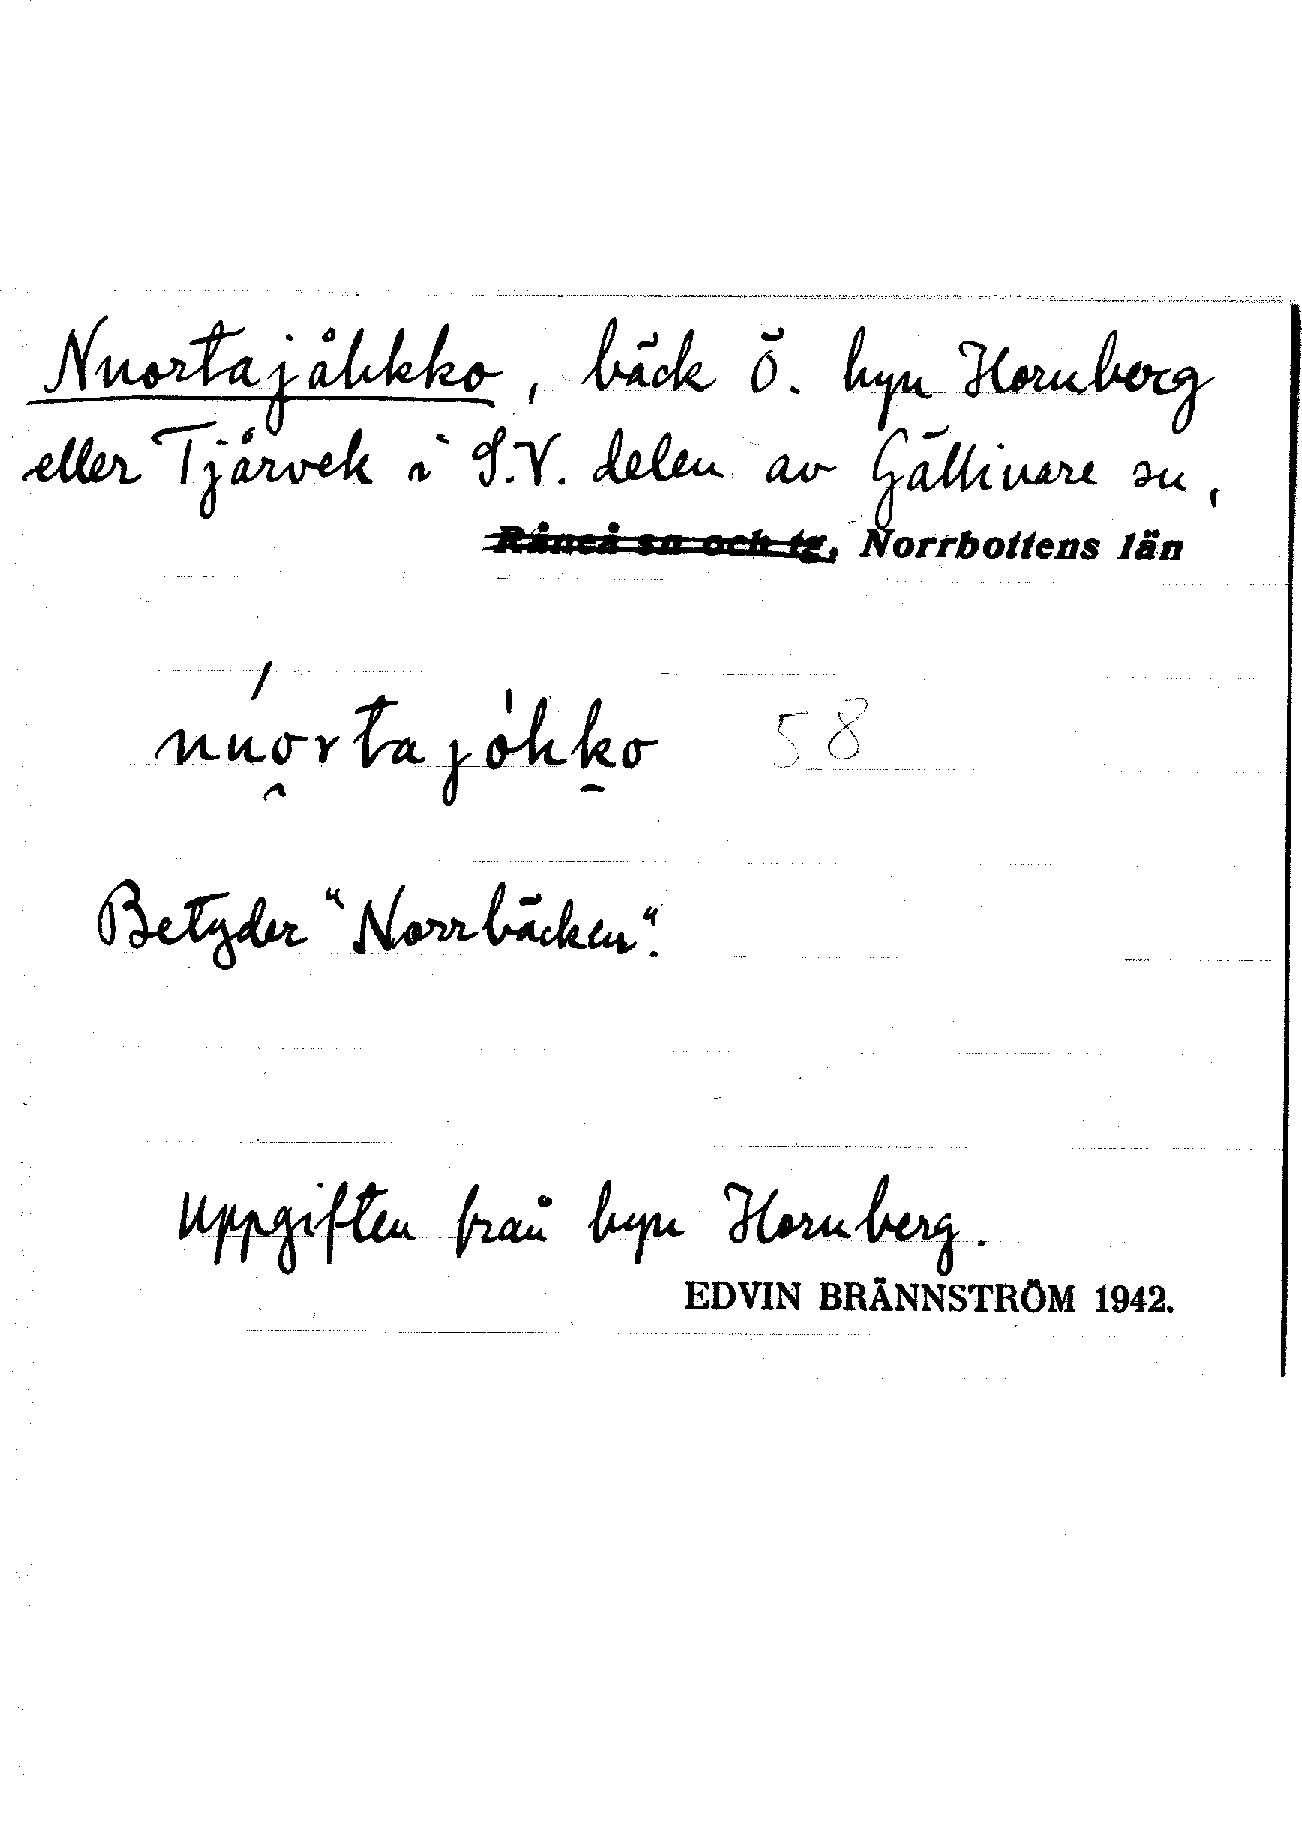 Nuortajåhkko, bäck Ö. byn Hornberg
eller Tjårvek i S.V. delen av Gällivare sn,
Råneå sn och tg, Norrbottens län
núo̯rtajóhk̯o 58
Betyder "Norrbäcken".
Uppgiften från byn Hornberg.
EDVIN BRÄNNSTRÖM 1942.